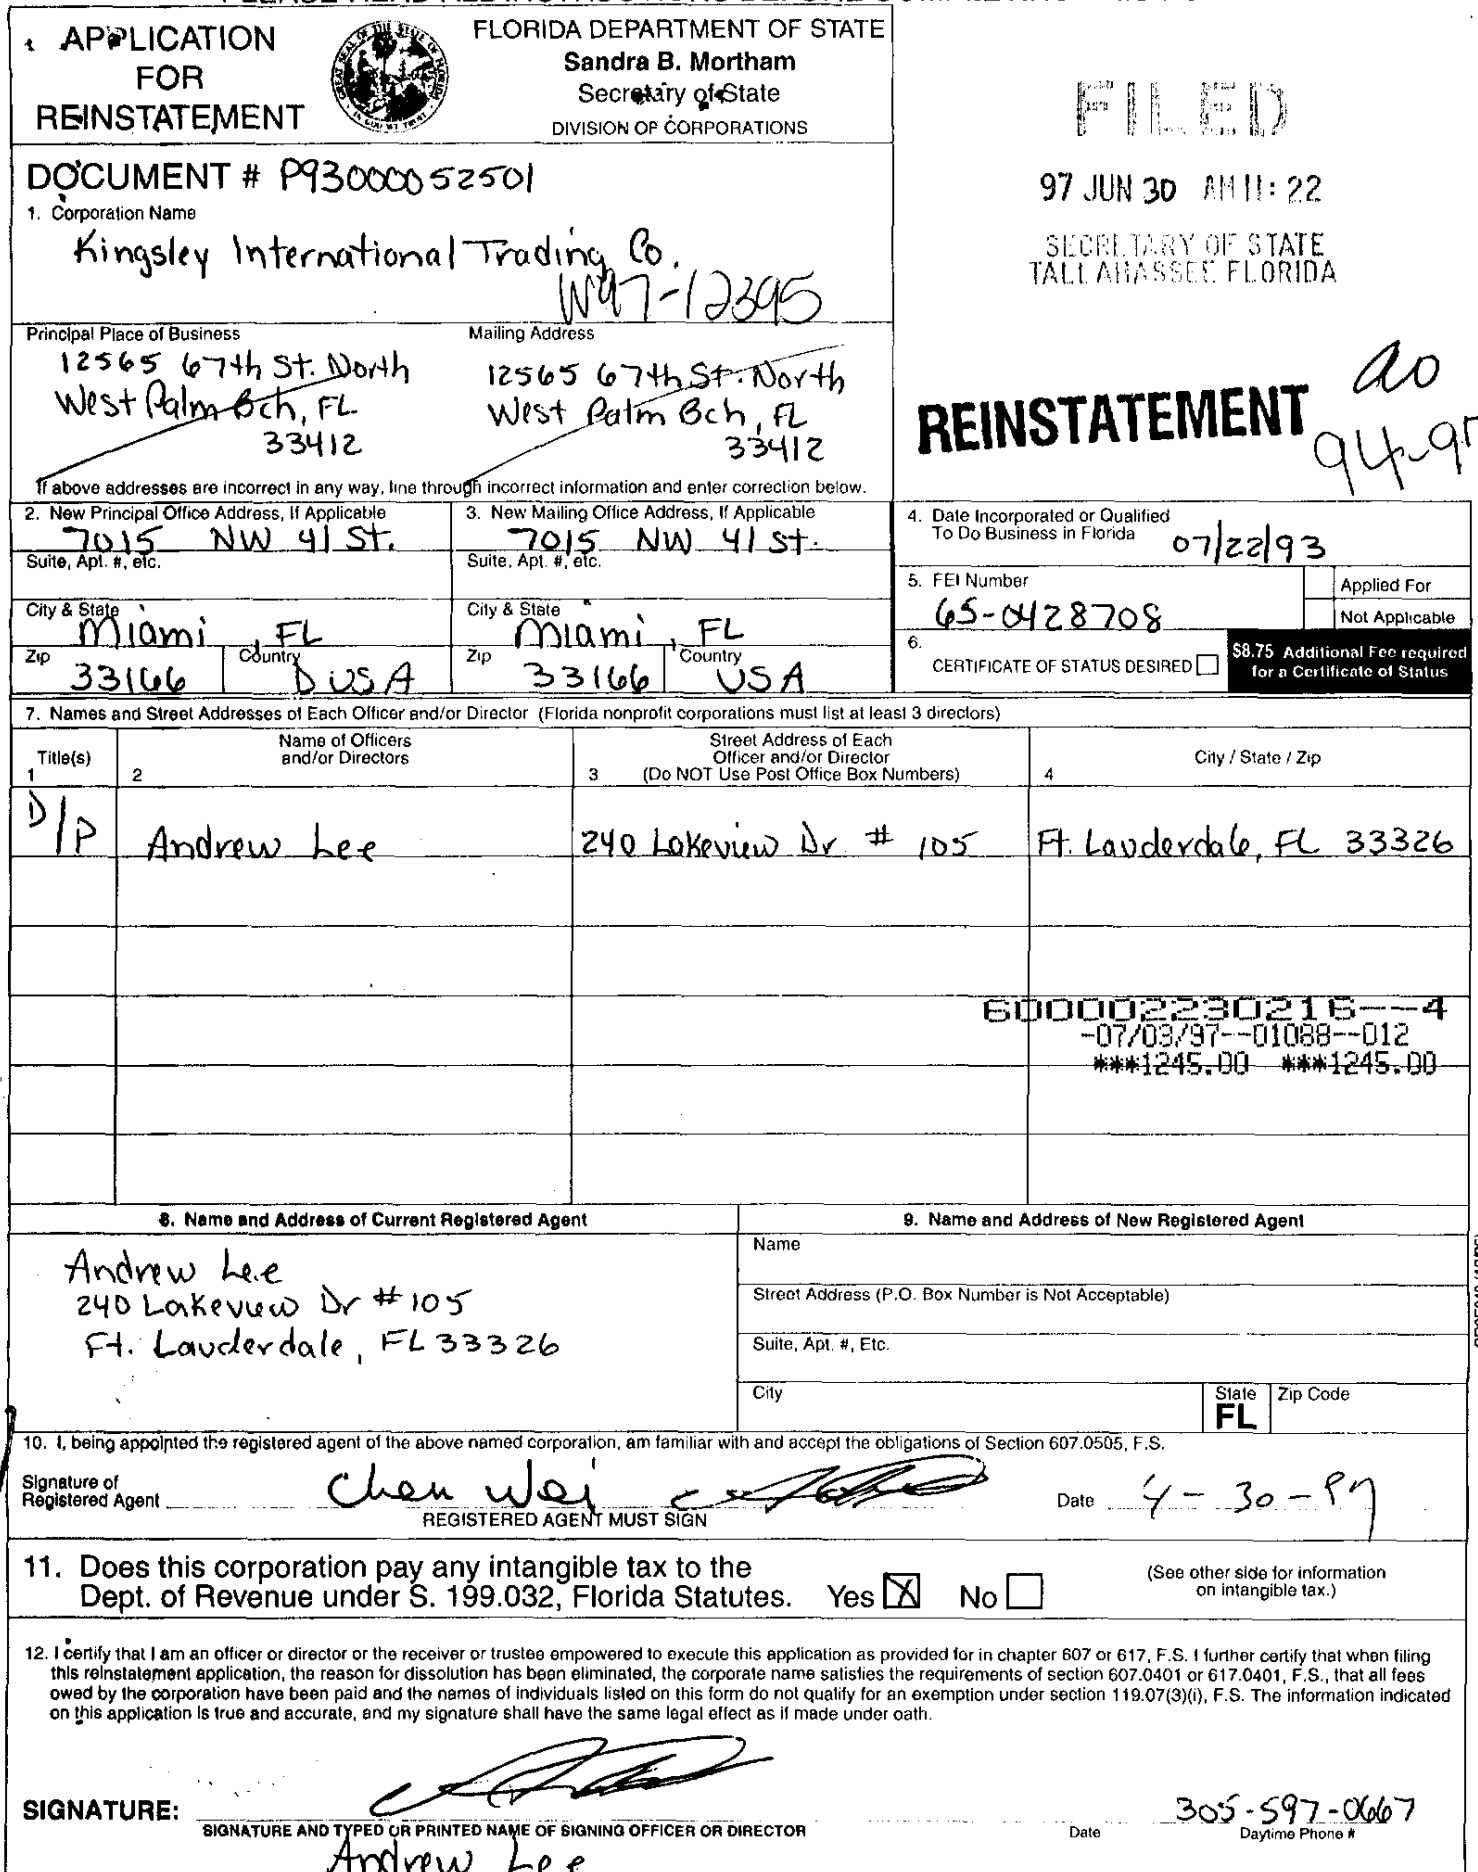 APPLICATION
FOR
REINSTATEMENT
FLORIDA DEPARTMENT OF STATE
Sandra B. Mortham
Secretary of State
DIVISION OF CORPORATIONS
FILED
97 JUN 30 AM 11: 22
SECRETARY OF STATE
TALLAHASSEE FLORIDA
DOCUMENT # P93000052501
1. Corporation Name
Kingsley International Trading Co.
W97-12395
Principal Place of Business
12565 67th St. North
West Palm Bch, FL
33412
Mailing Address
12565 67th St. North
West Palm Bch, FL
33412
REINSTATEMENT
If above addresses are incorrect in any way, line through incorrect information and enter correction below.
2. New Principal Office Address, If Applicable
7015 NW 41 St.
Suite, Apt. #, etc.
City & State
Miami, FL
Zip
33166
Country
USA
3. New Mailing Office Address, If Applicable
7015 NW 41 St.
Suite, Apt. #, etc.
City & State
Miami, FL
Zip
33166
Country
USA
4. Date Incorporated or Qualified
To Do Business in Florida
07/22/93
5. FEI Number
65-0428708
Applied For
Not Applicable
6.
CERTIFICATE OF STATUS DESIRED
$8.75 Additional Fee required
for a Certificate of Status
7. Names and Street Addresses of Each Officer and/or Director (Florida nonprofit corporations must list at least 3 directors)
Title(s)
1
Name of Officers
and/or Directors
2
Street Address of Each
Officer and/or Director
3 (Do NOT Use Post Office Box Numbers)
City / State / Zip
4
D/P Andrew Lee 240 Lakeview Dr # 105 Ft. Lauderdale, FL 33326
600002230216--4
-07/03/97--01088--012
***1245.00 ***1245.00
8. Name and Address of Current Registered Agent
Andrew Lee
240 Lakeview Dr #105
Ft. Lauderdale, FL 33326
9. Name and Address of New Registered Agent
Name
Street Address (P.O. Box Number is Not Acceptable)
Suite, Apt. #, Etc.
City
State
FL
Zip Code
10. I, being appointed the registered agent of the above named corporation, am familiar with and accept the obligations of Section 607.0505, F.S.
Signature of
Registered Agent
Chen Wei
REGISTERED AGENT MUST SIGN
Date 4-30-97
11. Does this corporation pay any intangible tax to the
Dept. of Revenue under S. 199.032, Florida Statutes. Yes X No
(See other side for information
on intangible tax.)
12. I certify that I am an officer or director or the receiver or trustee empowered to execute this application as provided for in chapter 607 or 617, F.S. I further certify that when filing
this reinstatement application, the reason for dissolution has been eliminated, the corporate name satisfies the requirements of section 607.0401 or 617.0401, F.S., that all fees
owed by the corporation have been paid and the names of individuals listed on this form do not qualify for an exemption under section 119.07(3)(i), F.S. The information indicated
on this application is true and accurate, and my signature shall have the same legal effect as if made under oath.
SIGNATURE:
305-597-0667
SIGNATURE AND TYPED OR PRINTED NAME OF SIGNING OFFICER OR DIRECTOR
Date
Daytime Phone #
Andrew Lee